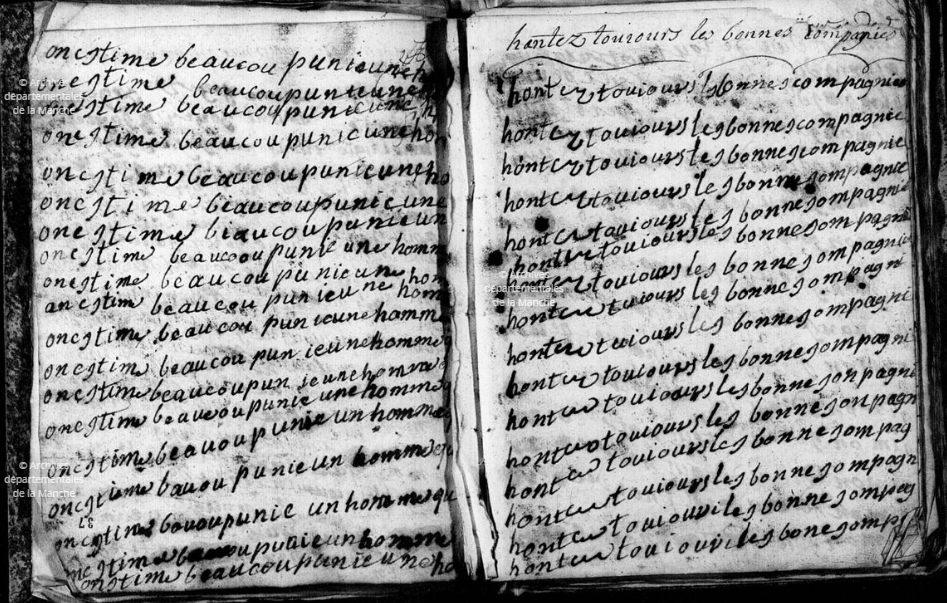 oncstime beaucou punieunehom
oncstime beaucoupunieuneh
oncstime beaucoupunieuneh
oncstime beaucoupunieunehon
oncstime beaucoupunieuneho
oncstime beaucoupunieune
oncstime beaucoupunieun
oncstime beaucoupunie une homm
oncstime beaucoupunieun hom
ancstime beaucou punieune hom
oncstime beaucou punieunehomme
oncstime beaucou punieunehomme
oncstime beaucoupun ieunehomme
oncstime beaucoupunieunehomme
oncstime beauoupunie unhomme
oncstime bauou punieun homme
oncstime bououpunie unhommequ
oncstime oupunieunhomme
oncstime beaucoupunieuneho
hantez touiours les bonnes compagnies
hontez touiours lesbonnescompagnie
hontez touiourslesbonnescompagnie
hontez touiours lesbonnescompagnie
hontez touiours lesbonnescompagnie
hontez touiours les bonnescompagnie
hontez touiourslesbonnescompagn
touiours les bonnesompagnie
hontez touiours les bonnesompagn
hontez touiours les bonnesompagnie
hontez touiours lesbonnesompagni
hontez touiours lesbonnesonpagni
hontez touiours les bonnesompagn
hontez touiourslesbonnesompag
hontez touiours lesbonnesompagn
hontez touiouriles bonnesompag
hontez touiouriles bonesomp
© Archives
départementales
de la Manche
départementales
de la Manche
© Archives
départementales
de la Manche